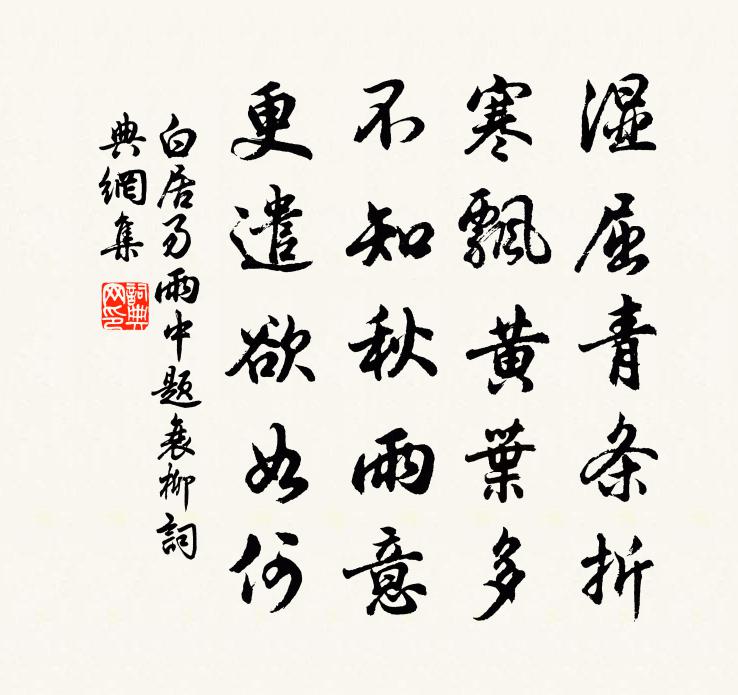 湿屈青条折
寒飄黄葉多
不知秋雨意
更遣欲如何
白居易雨中題衰柳詞
典網集
詞典
网印